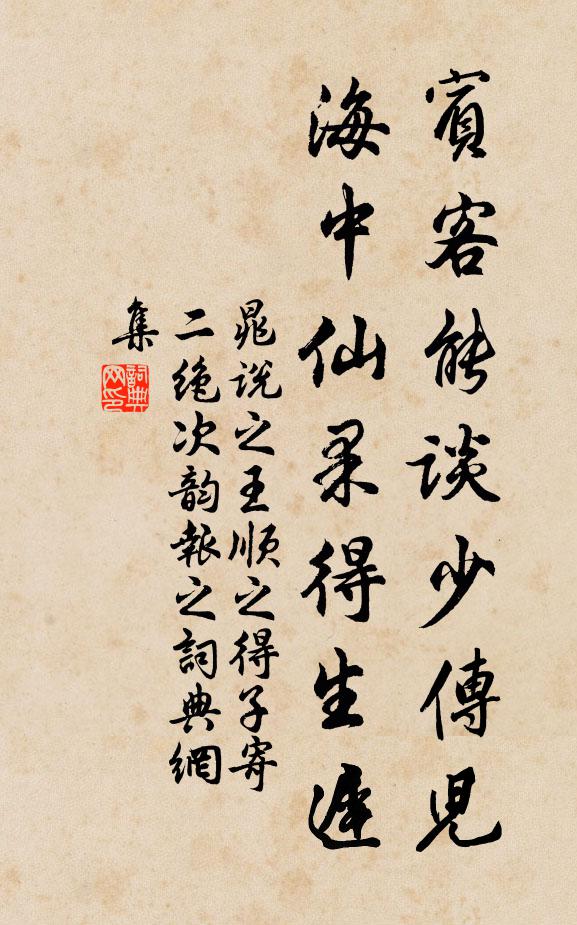 賓客能談少傅兒
海中仙果得生遲
晁說之王順之得子寄
二絕次韻報之詞典網
集
詞典
网印